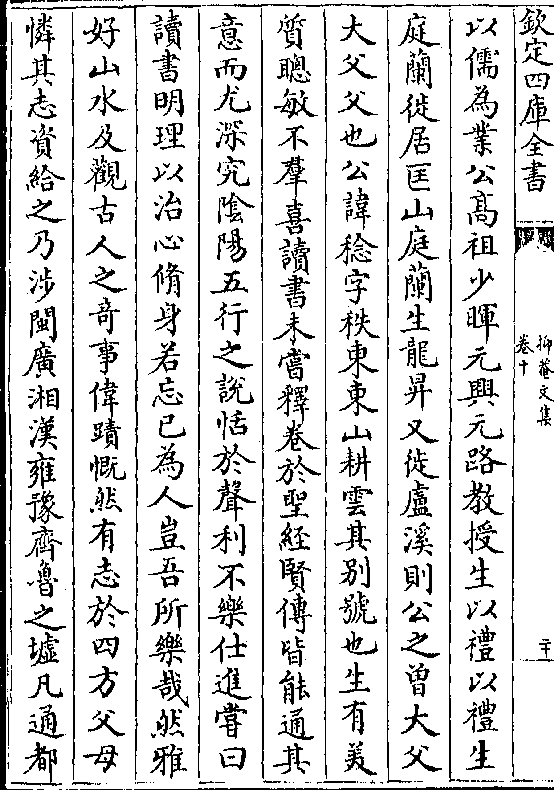 欽定四庫全書
抑菴文集
卷十
二十
以儒為業公髙祖少暉元興元路教授生以禮以禮生
庭蘭徙居匡山庭蘭生龍昇又徙盧溪則公之曽大父
大父父也公諱稔字秩東東山耕雲其别號也生有美
質聰敏不羣喜讀書未嘗釋卷於聖經賢傳皆能通其
意而尤深究隂陽五行之説恬於聲利不樂仕進嘗曰
讀書明理以治心脩身若忘已為人豈吾所樂哉然雅
好山水及觀古人之竒事偉蹟慨然有志於四方父母
憐其志資給之乃涉閩廣湘漢雍豫齊魯之墟凡通都